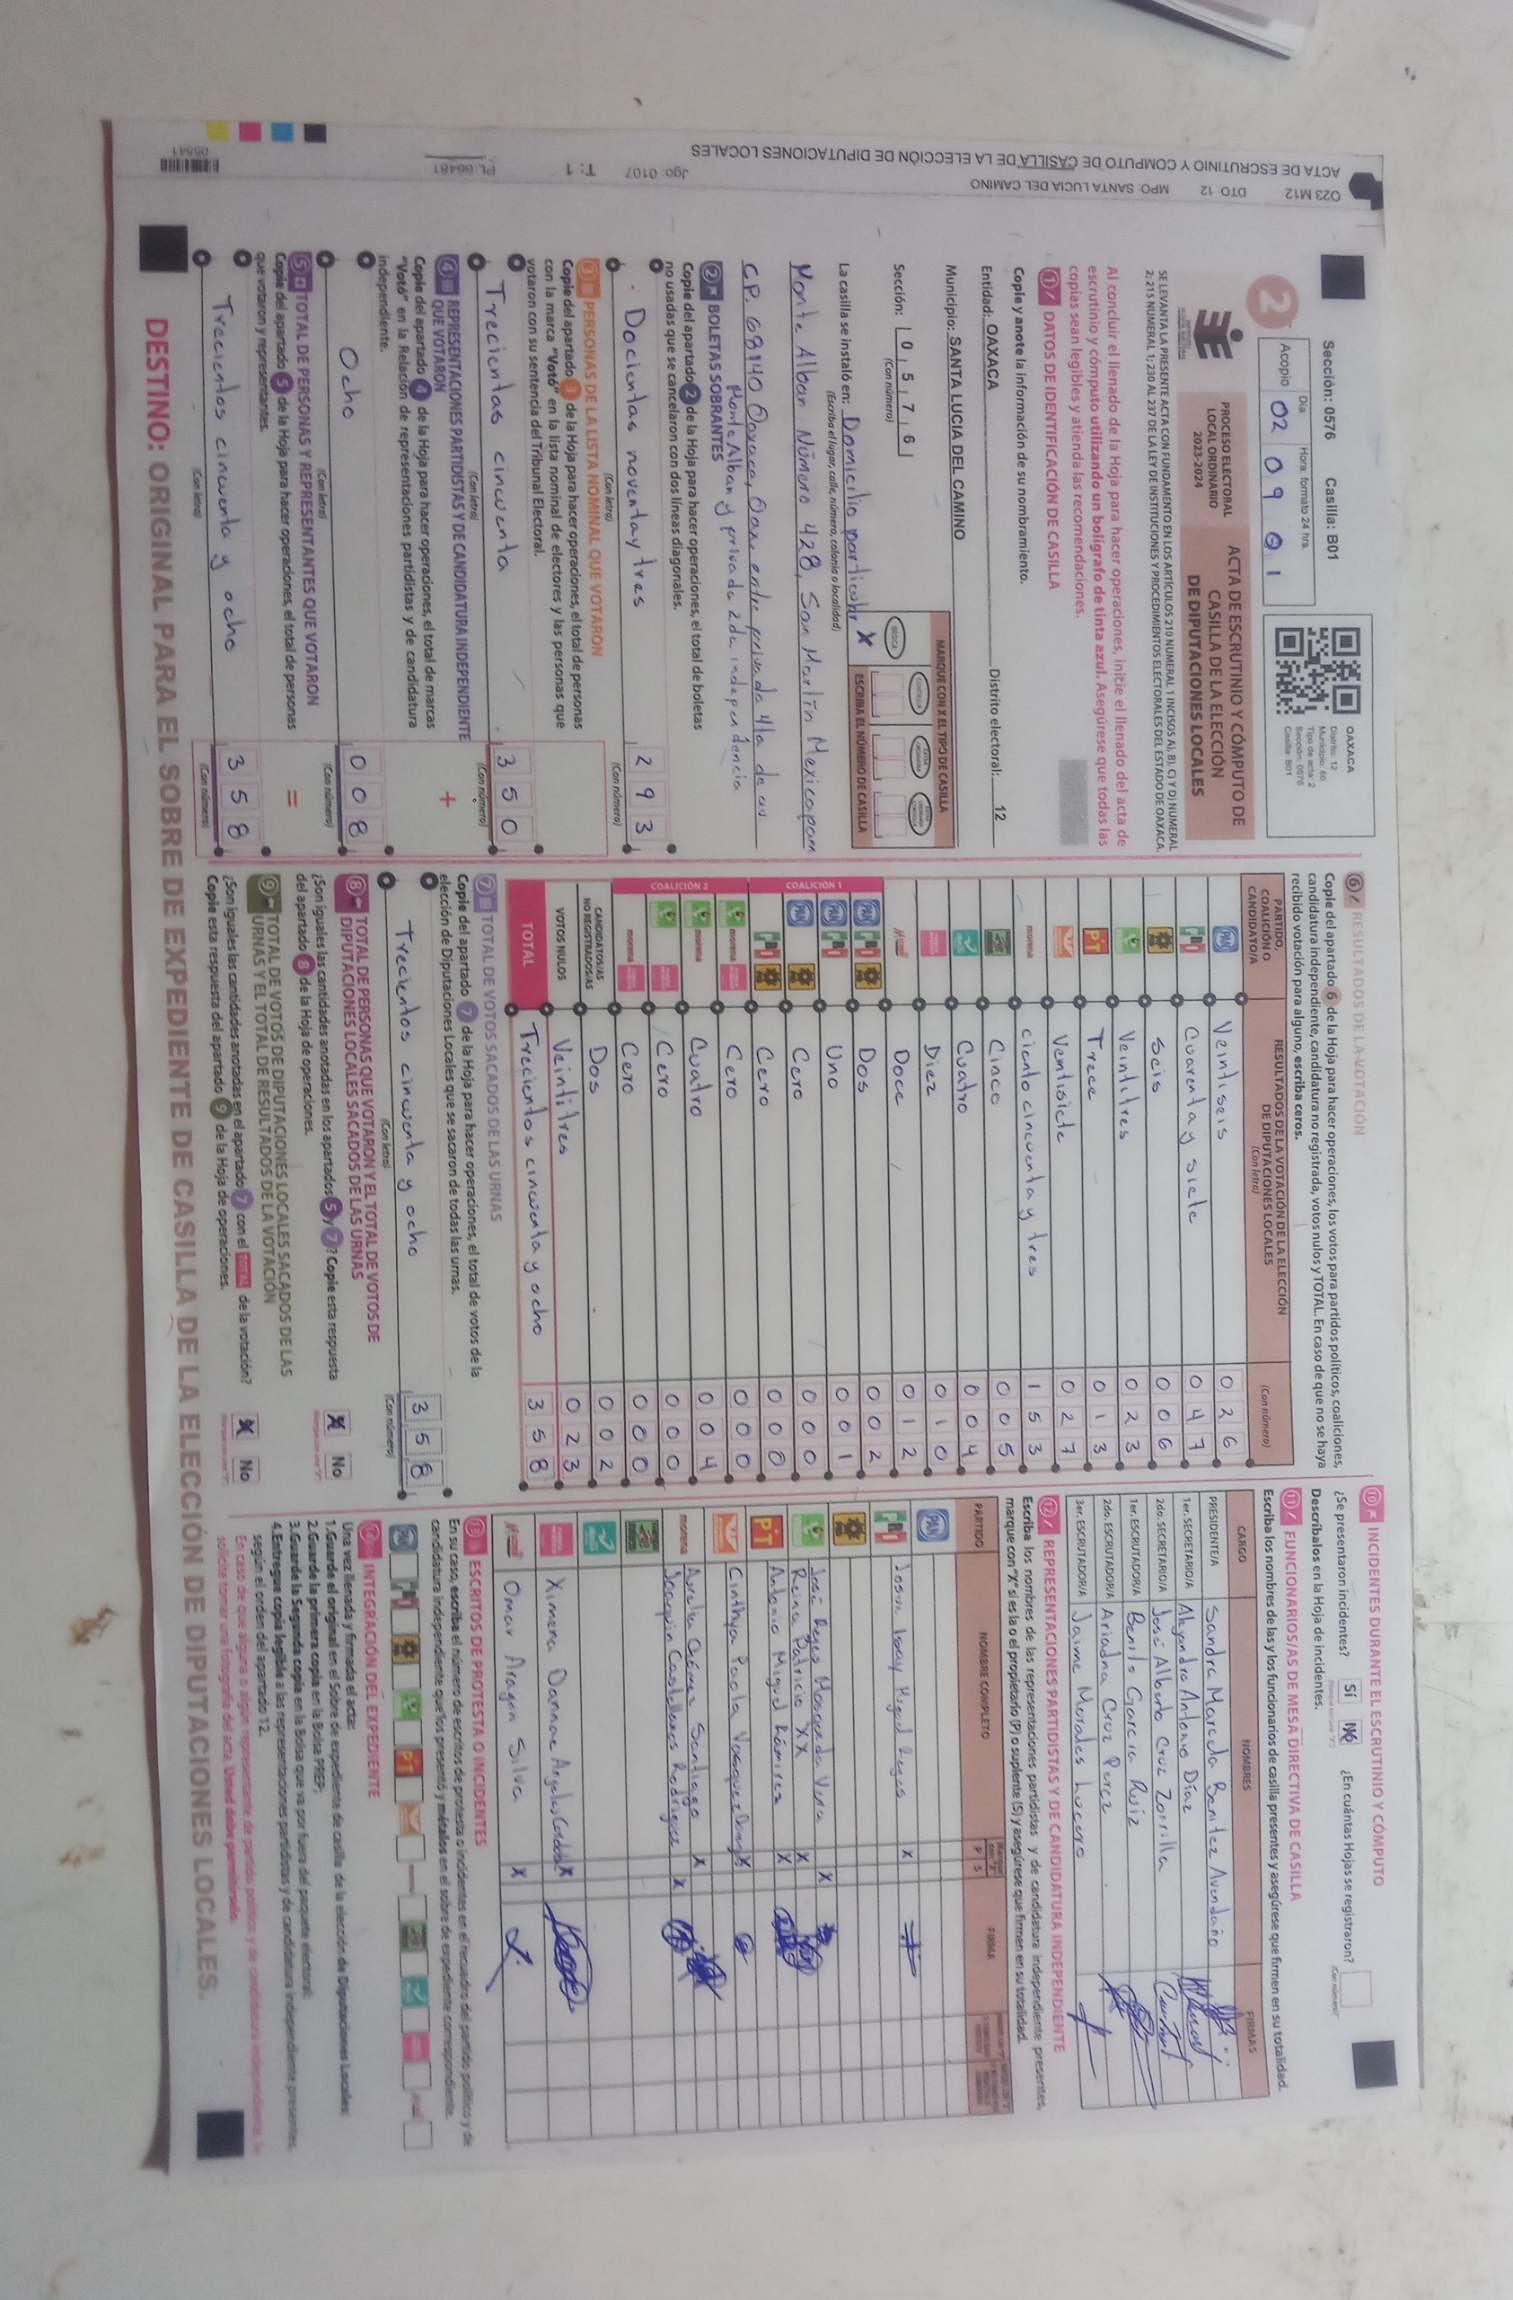 Sección: 0576 Casilla: B01
Día Hora: formato 24 hrs.
2
Acopio 02 09 01
OAXACA
Distrito: 12
Municipio: 66
Tipo de acta: 2
Sección: 0576
Casilla: B01
PROCESO ELECTORAL
LOCAL ORDINARIO
2023-2024
ACTA DE ESCRUTINIO Y CÓMPUTO DE
CASILLA DE LA ELECCIÓN
DE DIPUTACIONES LOCALES
SE LEVANTA LA PRESENTE ACTA CON FUNDAMENTO EN LOS ARTÍCULOS 210 NUMERAL 1 INCISOS A), B), C) Y D) NUMERAL
2; 215 NUMERAL 1; 230 AL 237 DE LA LEY DE INSTITUCIONES Y PROCEDIMIENTOS ELECTORALES DEL ESTADO DE OAXACA.
Al concluir el llenado de la Hoja para hacer operaciones, inicie el llenado del acta de
escrutinio y cómputo utilizando un bolígrafo de tinta azul. Asegúrese que todas las
copias sean legibles y atienda las recomendaciones.
1 DATOS DE IDENTIFICACIÓN DE CASILLA
Copie y anote la información de su nombramiento.
Entidad: OAXACA Distrito electoral: 12
Municipio: SANTA LUCIA DEL CAMINO
Sección: 0 5 7 6
(Con número)
MARQUE CON X EL TIPO DE CASILLA
BÁSICA X
ESCRIBA EL NÚMERO DE CASILLA
La casilla se instaló en: Domicilio particular
(Escriba el lugar, calle, número, colonia o localidad)
Monte Alban Número 428, San Martín Mexicapam
C.P. 68140 Oaxaca, Oax. entre privada 4ta de
Monte Alban y privada 2da independencia
2 BOLETAS SOBRANTES
Copie del apartado 2 de la Hoja para hacer operaciones, el total de boletas
no usadas que se cancelaron con dos líneas diagonales.
Docientas noventay tres 2 9 3
(Con letra) (Con número)
3 PERSONAS DE LA LISTA NOMINAL QUE VOTARON
Copie del apartado 3 de la Hoja para hacer operaciones, el total de personas
con la marca "Votó" en la lista nominal de electores y las personas que
votaron con su sentencia del Tribunal Electoral.
Trecientas cincuenta 3 5 0
(Con letra) (Con número)
4 REPRESENTACIONES PARTIDISTAS Y DE CANDIDATURA INDEPENDIENTE
QUE VOTARON
+
Copie del apartado 4 de la Hoja para hacer operaciones, el total de marcas
"Votó" en la Relación de representaciones partidistas y de candidatura
independiente.
Ocho 0 0 8
(Con letra) (Con número)
5 TOTAL DE PERSONAS Y REPRESENTANTES QUE VOTARON
=
Copie del apartado 5 de la Hoja para hacer operaciones, el total de personas
que votaron y representantes.
Trecientos cincuenta y ocho 3 5 8
(Con letra) (Con número)
6 RESULTADOS DE LA VOTACIÓN
Copie del apartado 6 de la Hoja para hacer operaciones, los votos para partidos políticos, coaliciones,
candidatura independiente, candidatura no registrada, votos nulos y TOTAL. En caso de que no se haya
recibido votación para alguno, escriba ceros.
PARTIDO, COALICIÓN O CANDIDATO/A
RESULTADOS DE LA VOTACIÓN DE LA ELECCIÓN DE DIPUTACIONES LOCALES
(Con letra) (Con número)
PAN Veintiseis 0 2 6
PRI Cuarenta y siete 0 4 7
Seis 0 0 6
Veintitres 0 2 3
PT Trece 0 1 3
Ventisiete 0 2 7
morena ciento cincuenta y tres 1 5 3
Cinco 0 0 5
Cuatro 0 0 4
Diez 0 1 0
Doce 0 1 2
COALICIÓN 1
PAN PRI Dos 0 0 2
PAN PRI Uno 0 0 1
PAN Cero 0 0 0
PRI Cero 0 0 0
COALICIÓN 2
morena Cero 0 0 0
morena Cuatro 0 0 4
Cero 0 0 0
morena Cero 0 0 0
CANDIDATOS/AS NO REGISTRADOS/AS Dos 0 0 2
VOTOS NULOS Veintitres 0 2 3
TOTAL Trecientos cincuenta y ocho 3 5 8
7 TOTAL DE VOTOS SACADOS DE LAS URNAS
Copie del apartado 7 de la Hoja para hacer operaciones, el total de votos de la
elección de Diputaciones Locales que se sacaron de todas las urnas.
Trecientos cincuenta y ocho 3 5 8
(Con letra) (Con número)
8 TOTAL DE PERSONAS QUE VOTARON Y EL TOTAL DE VOTOS DE
DIPUTACIONES LOCALES SACADOS DE LAS URNAS
¿Son iguales las cantidades anotadas en los apartados 5 y 7? Copie esta respuesta
del apartado 8 de la Hoja de operaciones.
X No
9 TOTAL DE VOTOS DE DIPUTACIONES LOCALES SACADOS DE LAS
URNAS Y EL TOTAL DE RESULTADOS DE LA VOTACIÓN
¿Son iguales las cantidades anotadas en el apartado 7 con el TOTAL de la votación?
Copie esta respuesta del apartado 9 de la Hoja de operaciones.
X No
10 INCIDENTES DURANTE EL ESCRUTINIO Y CÓMPUTO
¿Se presentaron incidentes? Sí No ¿En cuántas Hojas se registraron?
(Con número)
Descríbalos en la Hoja de incidentes.
11 FUNCIONARIOS/AS DE MESA DIRECTIVA DE CASILLA
Escriba los nombres de las y los funcionarios de casilla presentes y asegúrese que firmen en su totalidad.
CARGO NOMBRES FIRMAS
PRESIDENTE/A Sandra Marcela Benitez Avendaño
1er. SECRETARIO/A Alejandro Antonio Díaz
2do. SECRETARIO/A José Alberto Cruz Zorilla
1er. ESCRUTADOR/A Benito García Ruiz
2do. ESCRUTADOR/A Ariadna Cruz Perez
3er. ESCRUTADOR/A Jaime Morales Lucero
12 REPRESENTACIONES PARTIDISTAS Y DE CANDIDATURA INDEPENDIENTE
Escriba los nombres de las representaciones partidistas y de candidatura independiente presentes,
marque con "X" si es la o el propietario (P) o suplente (S) y asegúrese que firmen en su totalidad.
PARTIDO NOMBRE COMPLETO P S FIRMA
PAN
PRI Josue Isay Miguel Reyes X
José Reyes Maqueda Vera X
Reina Patricio XX X
PT Antonio Miguel Ramirez X
Cinthya Paola Vasquez X
morena Aurelia Gómez Santiago X
Joaquin Castellanos Rodriguez X
Ximena Dannae X
Omar Aragon Silva X
13 ESCRITOS DE PROTESTA O INCIDENTES
En su caso, escriba el número de escritos de protesta o incidentes en el recuadro del partido político y de
candidatura independiente que los presentó y métalos en el sobre de expediente correspondiente.
PAN PT
14 INTEGRACIÓN DEL EXPEDIENTE
Una vez llenada y firmada el acta:
1. Guarde el original en el Sobre de expediente de casilla de la elección de Diputaciones Locales;
2. Guarde la primera copia en la Bolsa PREP;
3. Guarde la Segunda copia en la Bolsa que va por fuera del paquete electoral;
4. Entregue copia legible a las representaciones partidistas y de candidatura independiente presentes,
según el orden del apartado 12.
En caso de que alguna o algún representante de partido político y de candidatura independiente, le
solicite tomar una fotografía del acta, Usted debe permitírselo.
DESTINO: ORIGINAL PARA EL SOBRE DE EXPEDIENTE DE CASILLA DE LA ELECCIÓN DE DIPUTACIONES LOCALES.
ACTA DE ESCRUTINIO Y COMPUTO DE CASILLA DE LA ELECCIÓN DE DIPUTACIONES LOCALES
023 M12 DTO 12 MPO: SANTA LUCIA DEL CAMINO
Jgo: 0107 T: 1 PL: 66461
05541